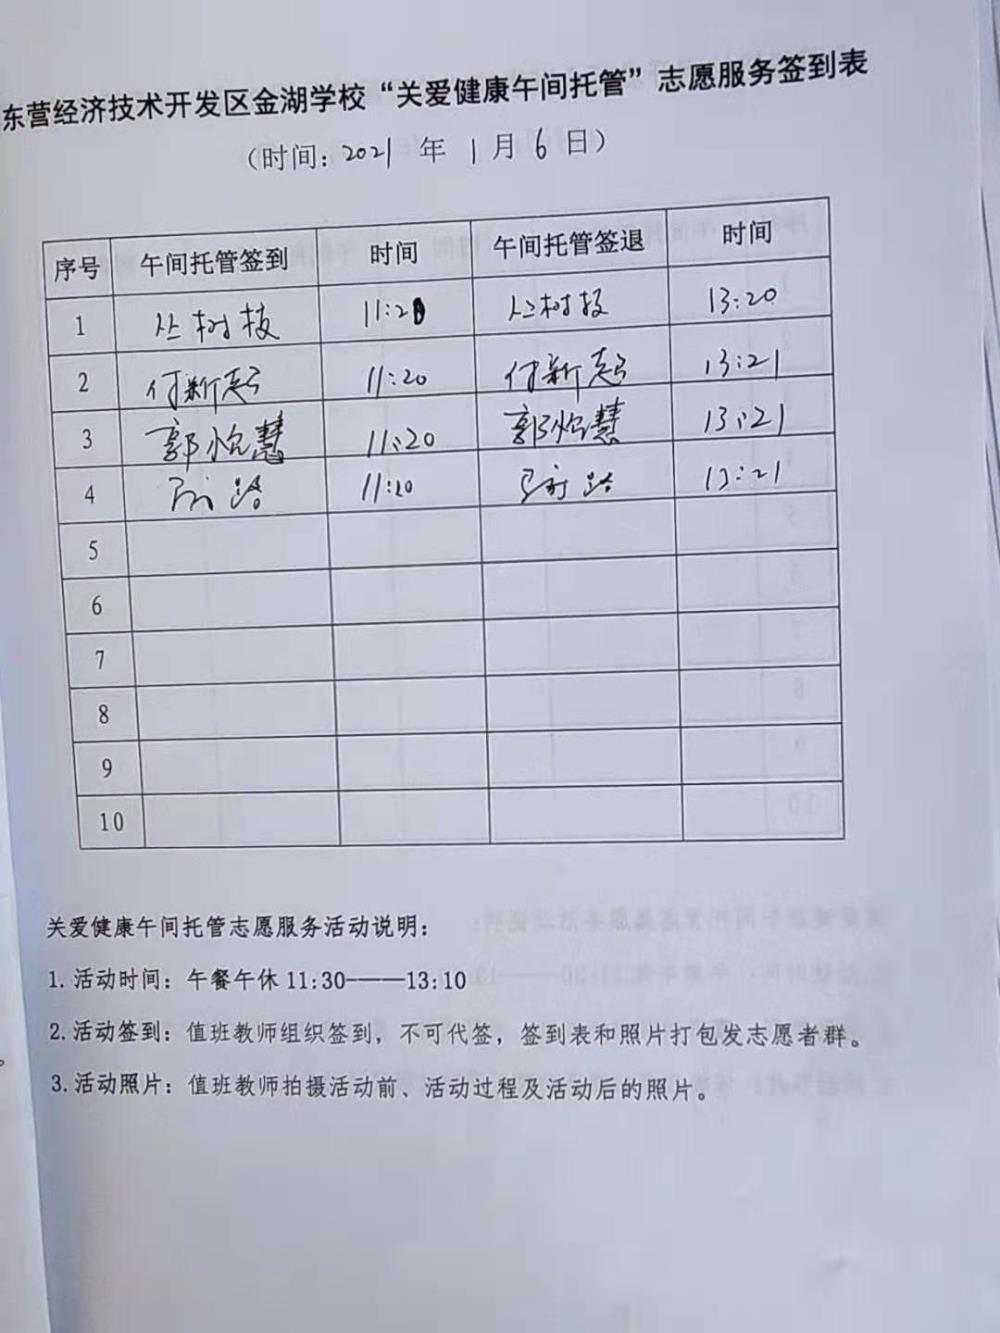 东营经济技术开发区金湖学校“关爱健康午间托管”志愿服务签到表
（时间：2021 年 1 月 6 日）
序号 午间托管签到 时间 午间托管签退 时间
1 丛树枝 11:20 丛树枝 13:20
2 付新起 11:20 付新起 13:21
3 郭怡慧 11:20 郭怡慧 13:21
4 11:20 13:21
5
6
7
8
9
10
关爱健康午间托管志愿服务活动说明：
1.活动时间：午餐午休 11:30——13:10
2.活动签到：值班教师组织签到，不可代签，签到表和照片打包发志愿者群。
3.活动照片：值班教师拍摄活动前、活动过程及活动后的照片。